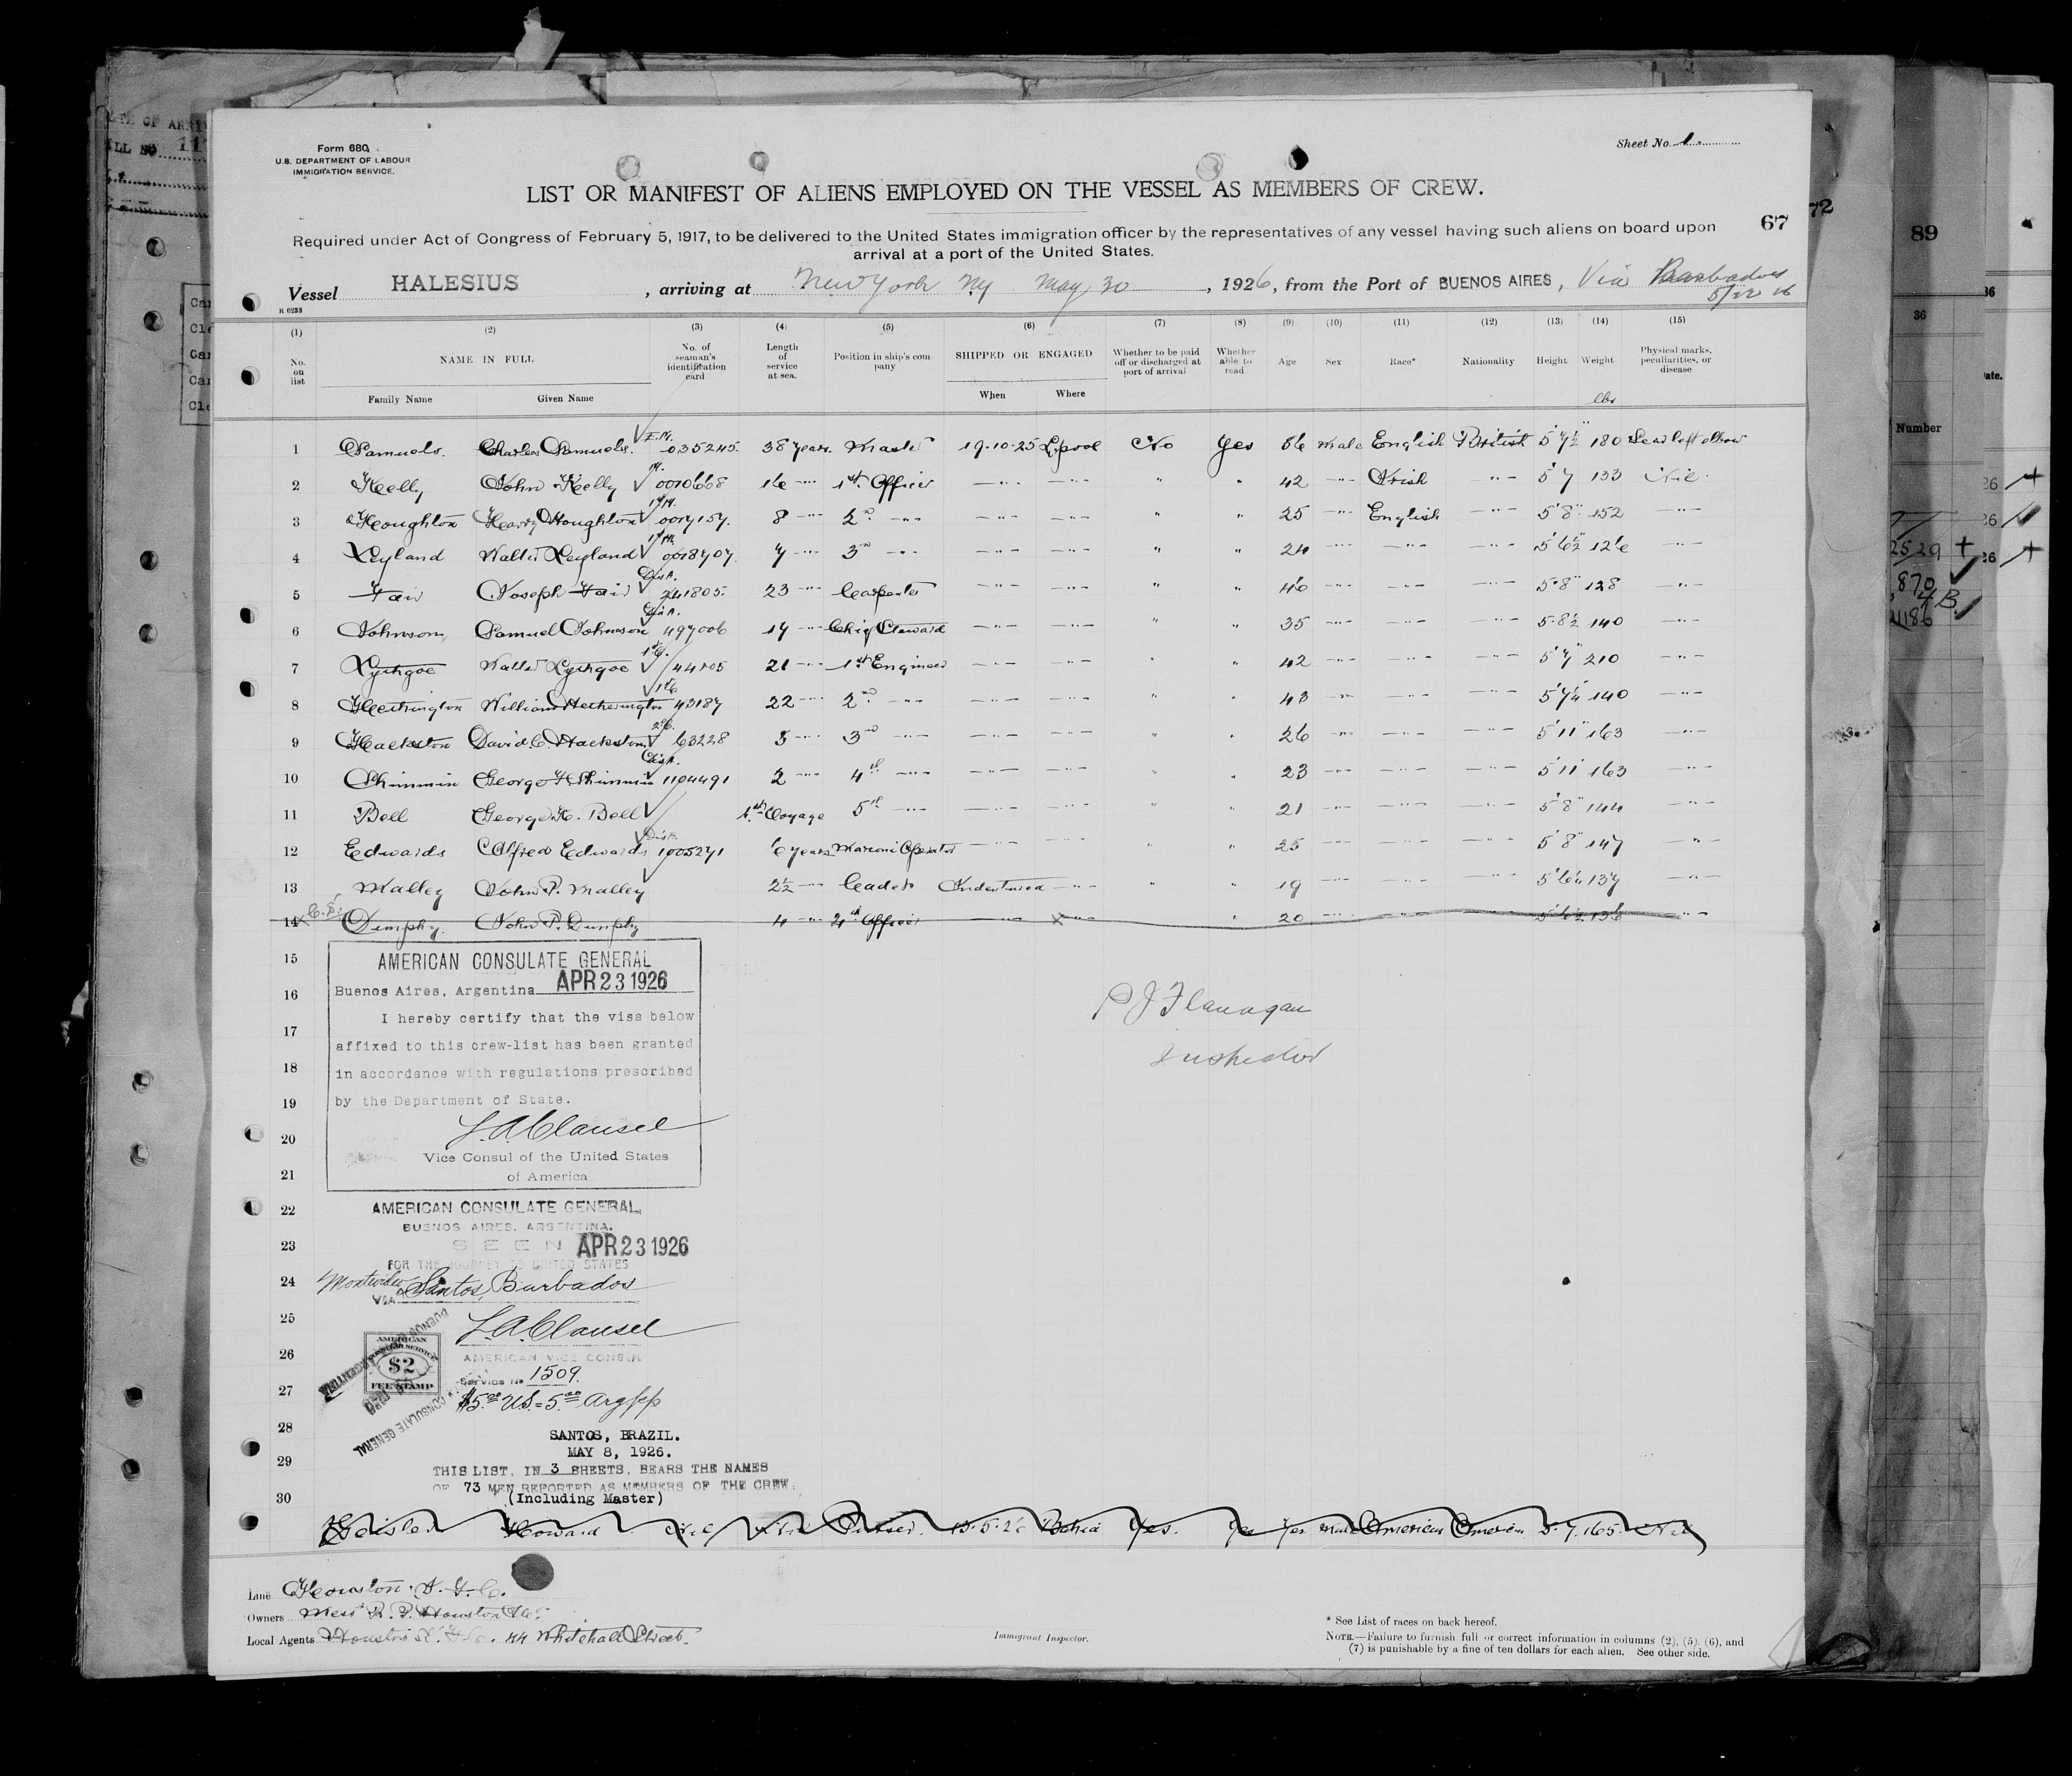 Form 680
U.S. DEPARTMENT OF LABOUR
IMMIGRATION SERVICE.
Sheet No. 1
LIST OR MANIFEST OF ALIENS EMPLOYED ON THE VESSEL AS MEMBERS OF CREW.
67
72
89
Required under Act of Congress of February 5, 1917, to be delivered to the United States immigration officer by the representatives of any vessel having such aliens on board upon
arrival at a port of the United States.
Vessel HALESIUS, arriving at New York Ny May 30, 1926, from the Port of BUENOS AIRES, Via Barbados
R 6233
(1) (2) (3) (4) (5) (6) (7) (8) (9) (10) (11) (12) (13) (14) (15)
No. on list NAME IN FULL No. of seaman's identification card Length of service at sea. Position in ship's company SHIPPED OR ENGAGED Whether to be paid off or discharged at port of arrival Whether able to read Age Sex Race* Nationality Height Weight Physical marks, peculiarities, or disease
Family Name Given Name When Where lbs
1 Samuels. Charles Samuels. 035245. 38 years. Master 19.10.25 L'pool No Yes 56 Male English British 5'7½" 180 Scar left elbow
2 Kelly John Kelly 0010668 16 -"- 1st Officer -"- -"- " " 42 -"- Irish -"- 5'7 133 Nil
3 Houghton Harry Houghton 0017157. 8 -"- 2nd -"- -"- -"- " " 25 -"- English -"- 5'8" 152 -"-
4 Leyland Walter Leyland 0018707. 7 -"- 3rd -"- -"- -"- " " 24 -"- -"- -"- 5'6½" 126 -"-
5 Fair Joseph Fair 241805. 23 -"- Carpenter -"- -"- " " 46 -"- -"- -"- 5'8" 128 -"-
6 Johnson, Samuel Johnson 497006 17 -"- Chief Steward -"- -"- " " 35 -"- -"- -"- 5'8½ 140 -"-
7 Lythgoe Walter Lythgoe 44105 21 -"- 1st Engineer -"- -"- " " 42 -"- -"- -"- 5'7" 210 -"-
8 Hetherington William Hetherington 43187 22 -"- 2nd -"- -"- -"- " " 43 -"- -"- -"- 5'7½ 140 -"-
9 Hackston David C. Hackston 63228 5 -"- 3rd -"- -"- -"- " " 26 -"- -"- -"- 5'11" 163 -"-
10 Shimmin George H Shimmin 1104491 2 -"- 4th -"- -"- -"- " " 23 -"- -"- -"- 5'11" 163 -"-
11 Bell George H. Bell 1st Voyage 5th -"- -"- -"- " " 21 -"- -"- -"- 5'8" 144 -"-
12 Edwards Alfred Edwards 1005271 6 years Marconi Operator -"- -"- " " 25 -"- -"- -"- 5'8" 147 -"-
13 Malley John P. Malley 2½ -"- Cadet Indentured -"- " " 19 -"- -"- -"- 137 -"-
14 Dunphy. John P. Dunphy 4 -"- 4th Officer -"- -"- " 20 -"- -"- -"- 5'6½ 136 -"-
15
AMERICAN CONSULATE GENERAL
16
Buenos Aires, Argentina APR 23 1926
I hereby certify that the visa below
P J Flanagan
17
affixed to this crew-list has been granted
Inspector
18
in accordance with regulations prescribed
19
by the Department of State.
20
L.A. Clausel
Vice Consul of the United States
21
of America
22
AMERICAN CONSULATE GENERAL,
BUENOS AIRES, ARGENTINA.
23
SEEN APR 23 1926
FOR THE JOURNEY TO UNITED STATES
24
Montevideo
VIA Santos, Barbados
25
L.A. Clausel
26
AMERICAN VICE CONSUL
AMERICAN
CONSULAR SERVICE
$2
FEE STAMP
27
Service No 1509.
28
SANTOS, BRAZIL.
MAY 8, 1926.
29
THIS LIST, IN 3 SHEETS, BEARS THE NAMES
OF 73 MEN REPORTED AS MEMBERS OF THE CREW.
30
(Including Master)
Geisler Howard Nil Nil Purser. 13.5.26 Bahia Yes. Yes Yes Male American American 5.7. 165. Nil
Line Houston
Owners Messrs R. P. Houston & Co.
Local Agents Houston 44 Whitehall Street.
Immigrant Inspector.
* See List of races on back hereof.
NOTE.—Failure to furnish full or correct information in columns (2), (5), (6), and
(7) is punishable by a fine of ten dollars for each alien. See other side.